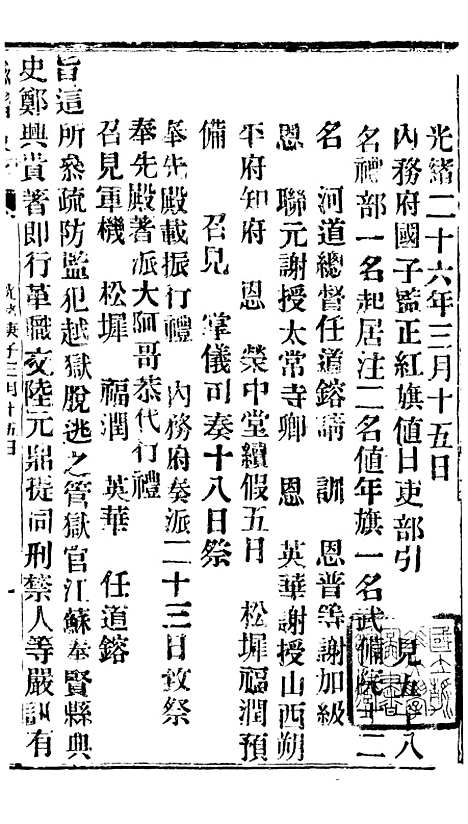 光緒二十六年三月十五日
內務府國子監正紅旗値日吏部引　見九十八
名禮部一名起居注二名値年旗一名武備院十二
名　河道總督任道鎔請　訓　恩普等謝加級
恩　聯元謝授太常寺卿　恩　英華謝授山西朔
平府知府　恩　榮中堂續假五日　松墀福潤預
備　召見　掌儀司奏十八日祭
奉先殿載振行禮　內務府奏派二十三日致祭
奉先殿著派大阿哥恭代行禮
召見軍機　松墀　福潤　英華　任道鎔
旨這所參疏防監犯越獄脫逃之管獄官江蘇奉賢縣典
史鄭興貲著卽行革職交陸元鼎提同刑禁人等嚴訊有
光緒庚子三月十五日